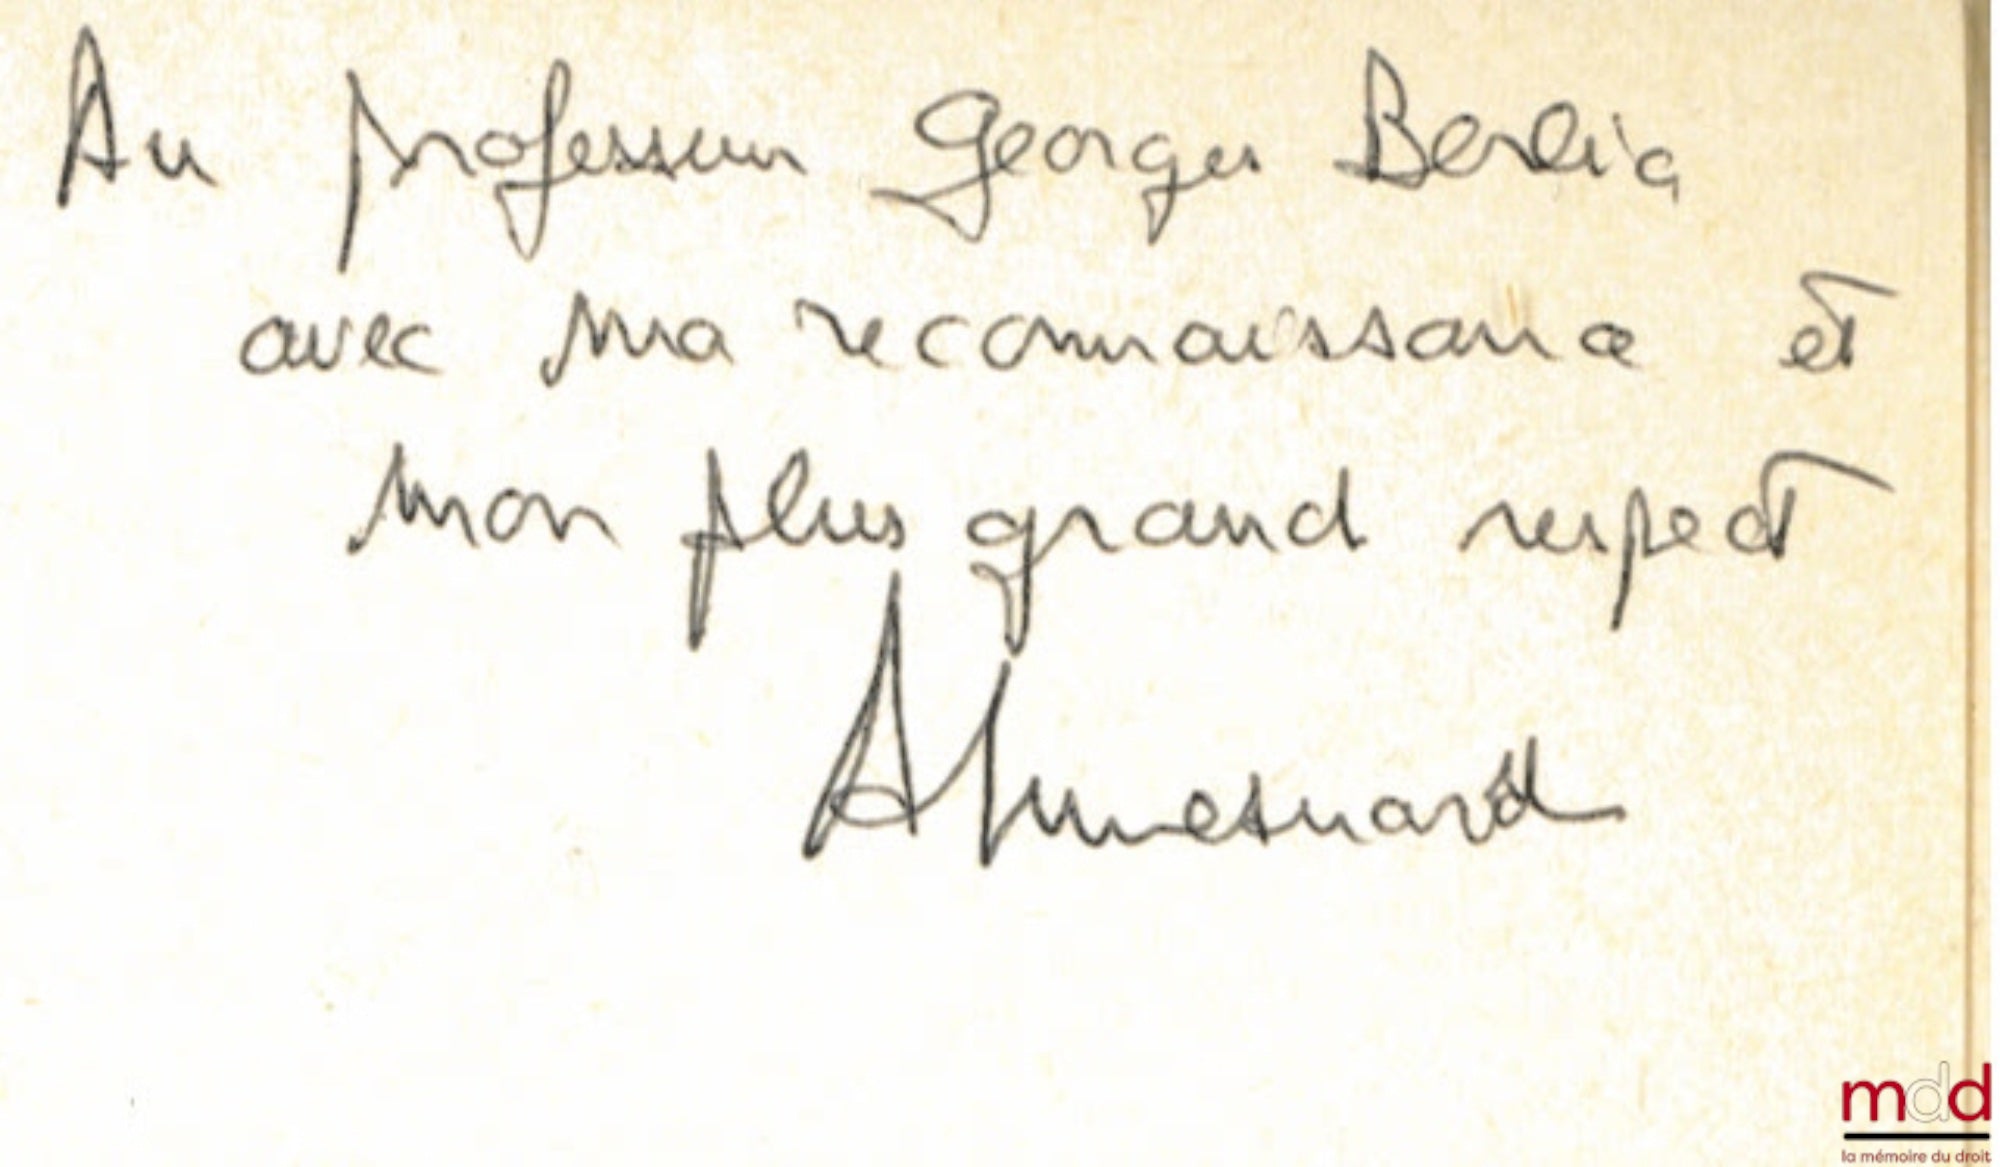 Au professeur Georges Berlia
avec ma reconnaissance et
mon plus grand respect
mdd
la mémoire du droit